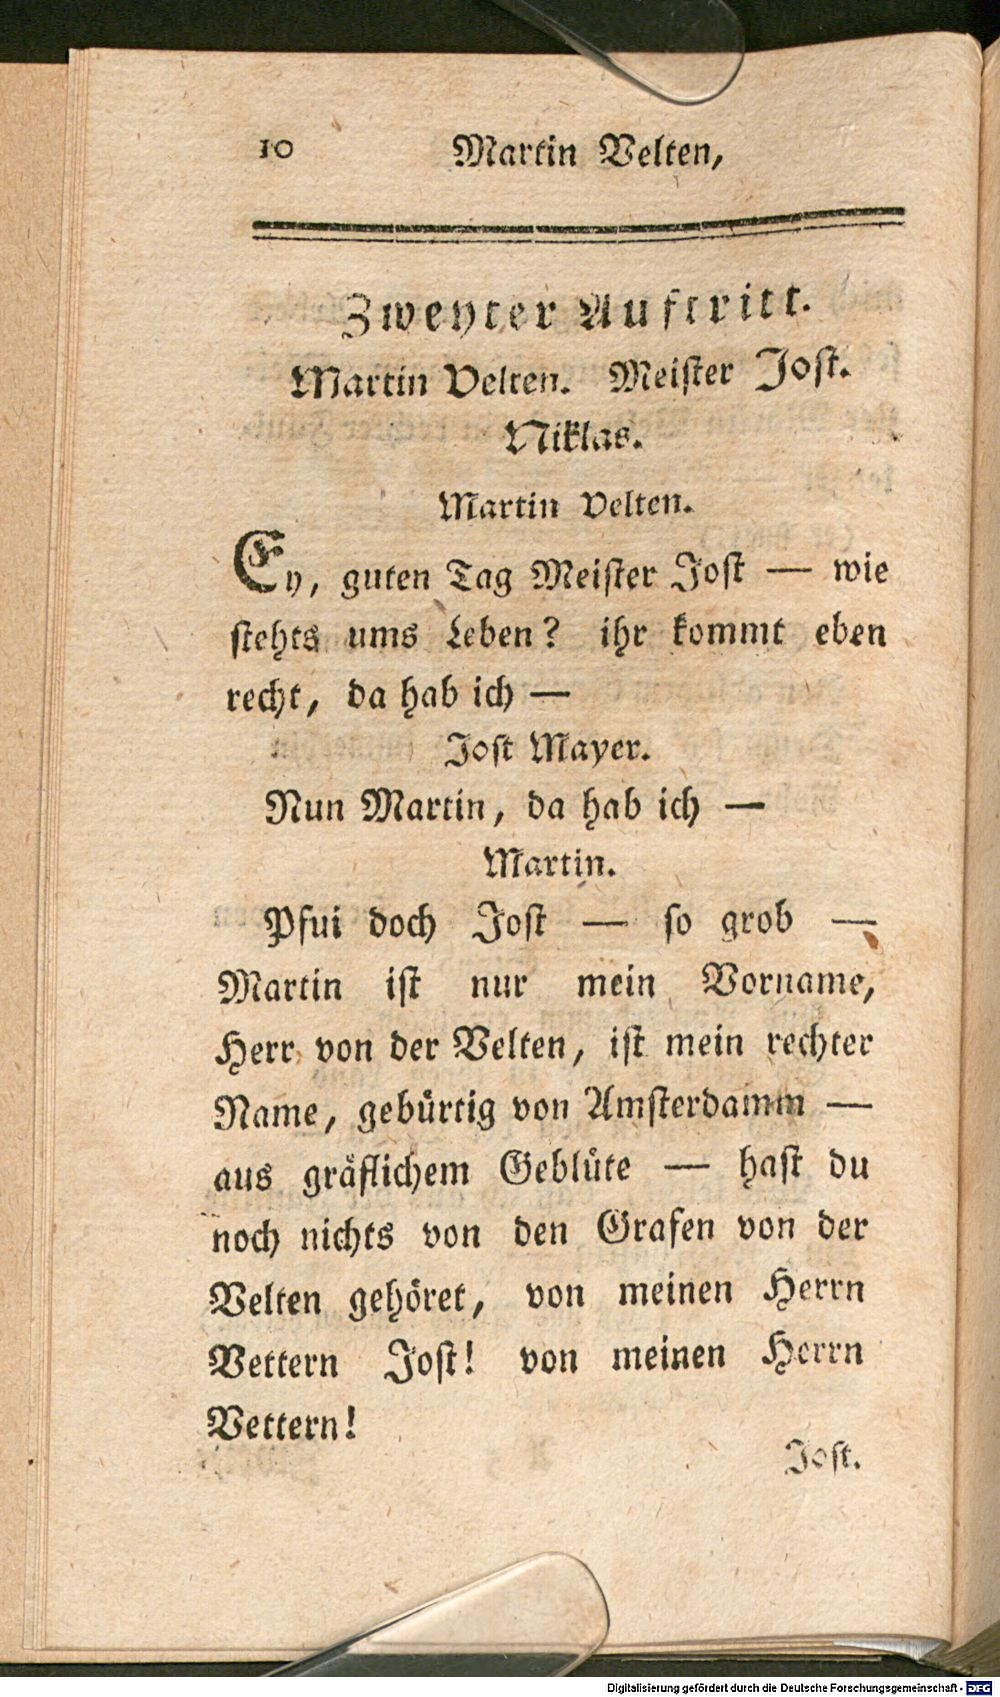 10 Martin Velten,
Zweyter Auftritt.
Martin Velten. Meiſter Joſt.
Niklas.
Martin Velten.
Ey, guten Tag Meiſter Joſt — wie
ſtehts ums Leben? ihr kommt eben
recht, da hab ich —
Joſt Mayer.
Nun Martin, da hab ich —
Martin.
Pfui doch Joſt — ſo grob —
Martin iſt nur mein Vorname,
Herr von der Velten, iſt mein rechter
Name, gebürtig von Amſterdamm —
aus gräflichem Geblüte — haſt du
noch nichts von den Grafen von der
Velten gehöret, von meinen Herrn
Vettern Joſt! von meinen Herrn
Vettern!
Joſt.
Digitalisierung gefördert durch die Deutsche Forschungsgemeinschaft - DFG